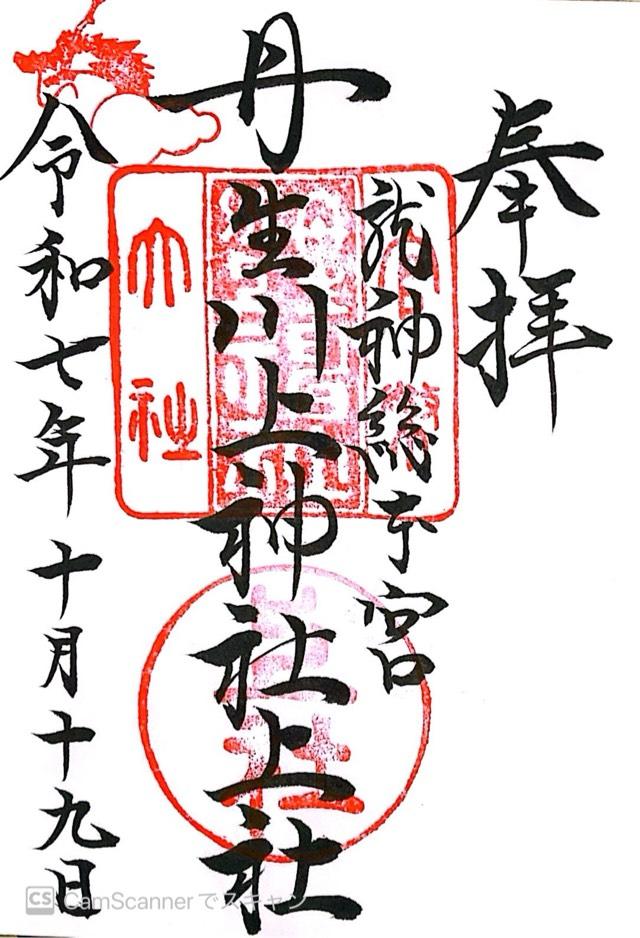 奉拝
龍神総本宮
丹生川上神社上社
令和七年十月十九日
大社
上社
CS CamScannerでスキャン